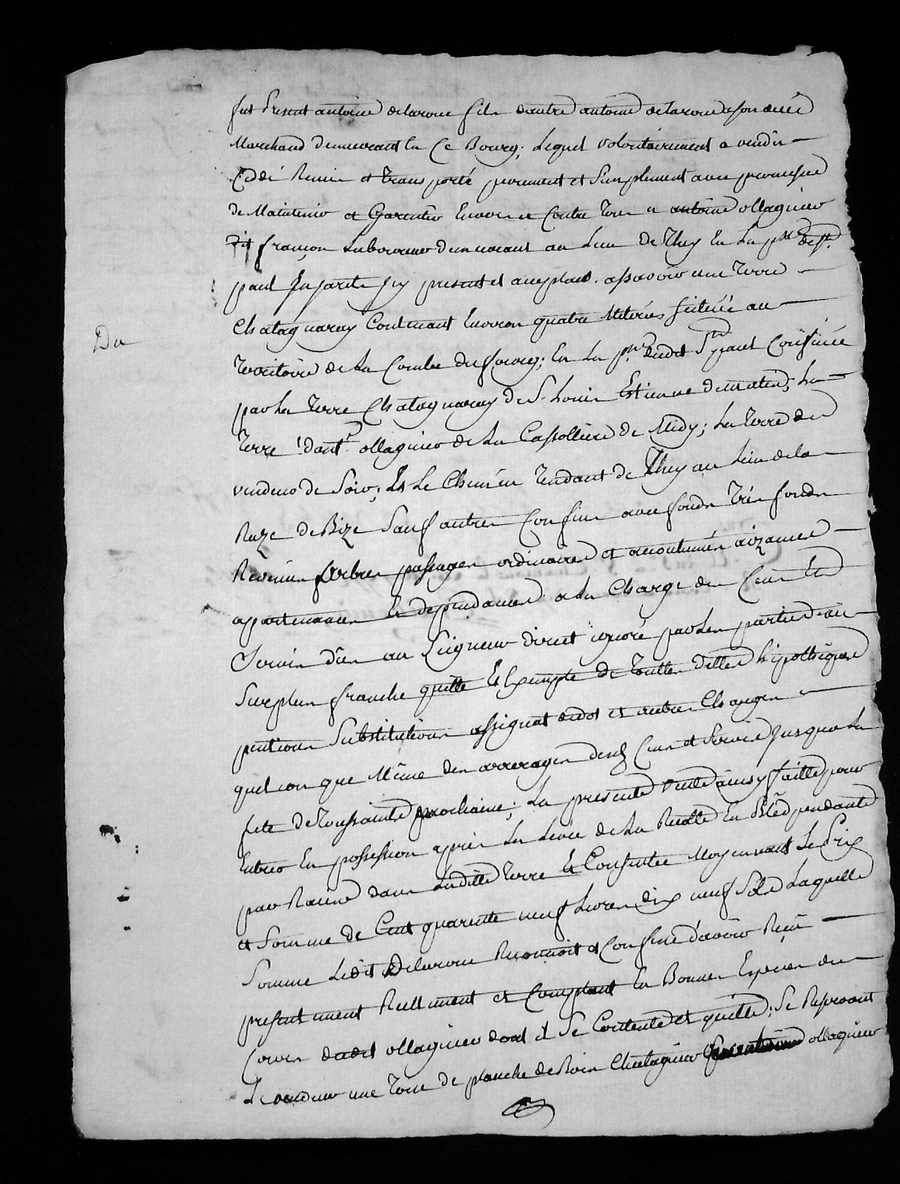 fut Present antoine delaroue fils dautre antoine delaroue
Marchand demeurant En Ce Bourg; Lequel volontairement a vendu
Cedé Remis et transporté purement et Simplement avec promesse
de Maintenir et Garentir Envers et Contre tous a antoine ollagnier
dit françon Laboureur demeurant au Lieu de They En La psse de St
paul En jarest Icy present et acceptant. assavoir une Terre
Du
Chataqneray Contenant Environ quatre Meterées située au
Territoire de La Combe du fourg; En La psse dudit St paul Confinée
par La Terre Chataqneray de Sr Louis Estienne de matin; La
Terre dantne ollagnier de La Cassolliere de Midy; La Terre du
vendeur de Soir; Et Le Chemin Tendant de They au Lieu de la
Ruze de Bize Sauf autres Confins avec fonds Tres fonds
Revenus Arbres passages ordinaires et accoutumés aizances
appartenances Et dependances a La Charge du Cens Et
Servis dûs au Seigneur direct ignoré par Les parties du
Surplus franche quitte Et Exempte de Toutes dettes hipotheques
pentions Substitutions assignat de dot et autres Charges
quelconque Même des arrerages desd Cens et Servis Jusqua La
fete de Toussaints prochaine; La presente vente ainsy faitte pour
Entrer En possession apres La Levée de La Recolte En Bled pendante
par Racine dans Laditte Terre Et Consentie Moyennant Le Prix
et Somme de Cent quarente neuf Livres dix neuf Sols Laquelle
Somme Ledit Delaroue Reconnoit et Confesse d'avoir Reçu
presentement Reellement et Comptant En Bonnes Especes du
Cours dudit ollagnier dont il Se Contente et quitte; Se Reservant
Le vendeur une Toise de planche de Bois Chatagnier ollagnier